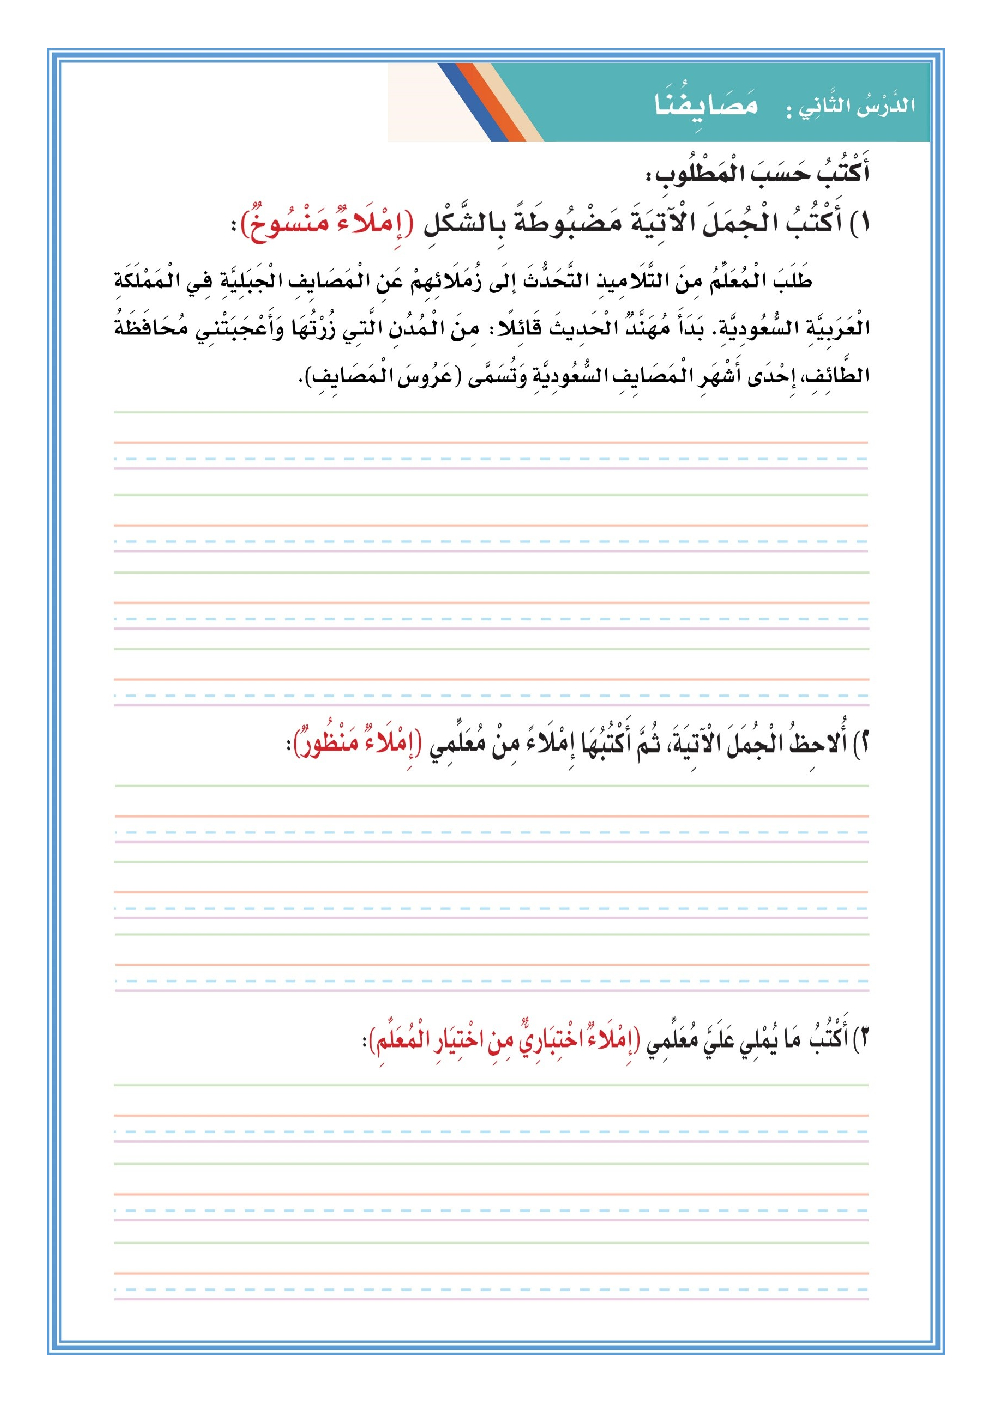 الدَّرْسُ الثَّانِي : مَصَايِفُنَا
أَكْتُبُ حَسَبَ الْمَطْلُوبِ:
١) أَكْتُبُ الْجُمَلَ الْآتِيَةَ مَضْبُوطَةً بِالشَّكْلِ (إِمْلَاءٌ مَنْسُوخٌ):
طَلَبَ الْمُعَلِّمُ مِنَ التَّلَامِيذِ التَّحَدُّثَ إِلَى زُمَلَائِهِمْ عَنِ الْمَصَايِفِ الْجَبَلِيَّةِ فِي الْمَمْلَكَةِ
الْعَرَبِيَّةِ السُّعُودِيَّةِ. بَدَأَ مُهَنَّدٌ الْحَدِيثَ قَائِلًا: مِنَ الْمُدُنِ الَّتِي زُرْتُهَا وَأَعْجَبَتْنِي مُحَافَظَةُ
الطَّائِفِ، إِحْدَى أَشْهَرِ الْمَصَايِفِ السُّعُودِيَّةِ وَتُسَمَّى (عَرُوسَ الْمَصَايِفِ).
٢) أُلَاحِظُ الْجُمَلَ الْآتِيَةَ، ثُمَّ أَكْتُبُهَا إِمْلَاءً مِنْ مُعَلِّمِي (إِمْلَاءٌ مَنْظُورٌ):
٣) أَكْتُبُ مَا يُمْلِي عَلَيَّ مُعَلِّمِي (إِمْلَاءٌ اخْتِبَارِيٌّ مِنِ اخْتِيَارِ الْمُعَلِّمِ):